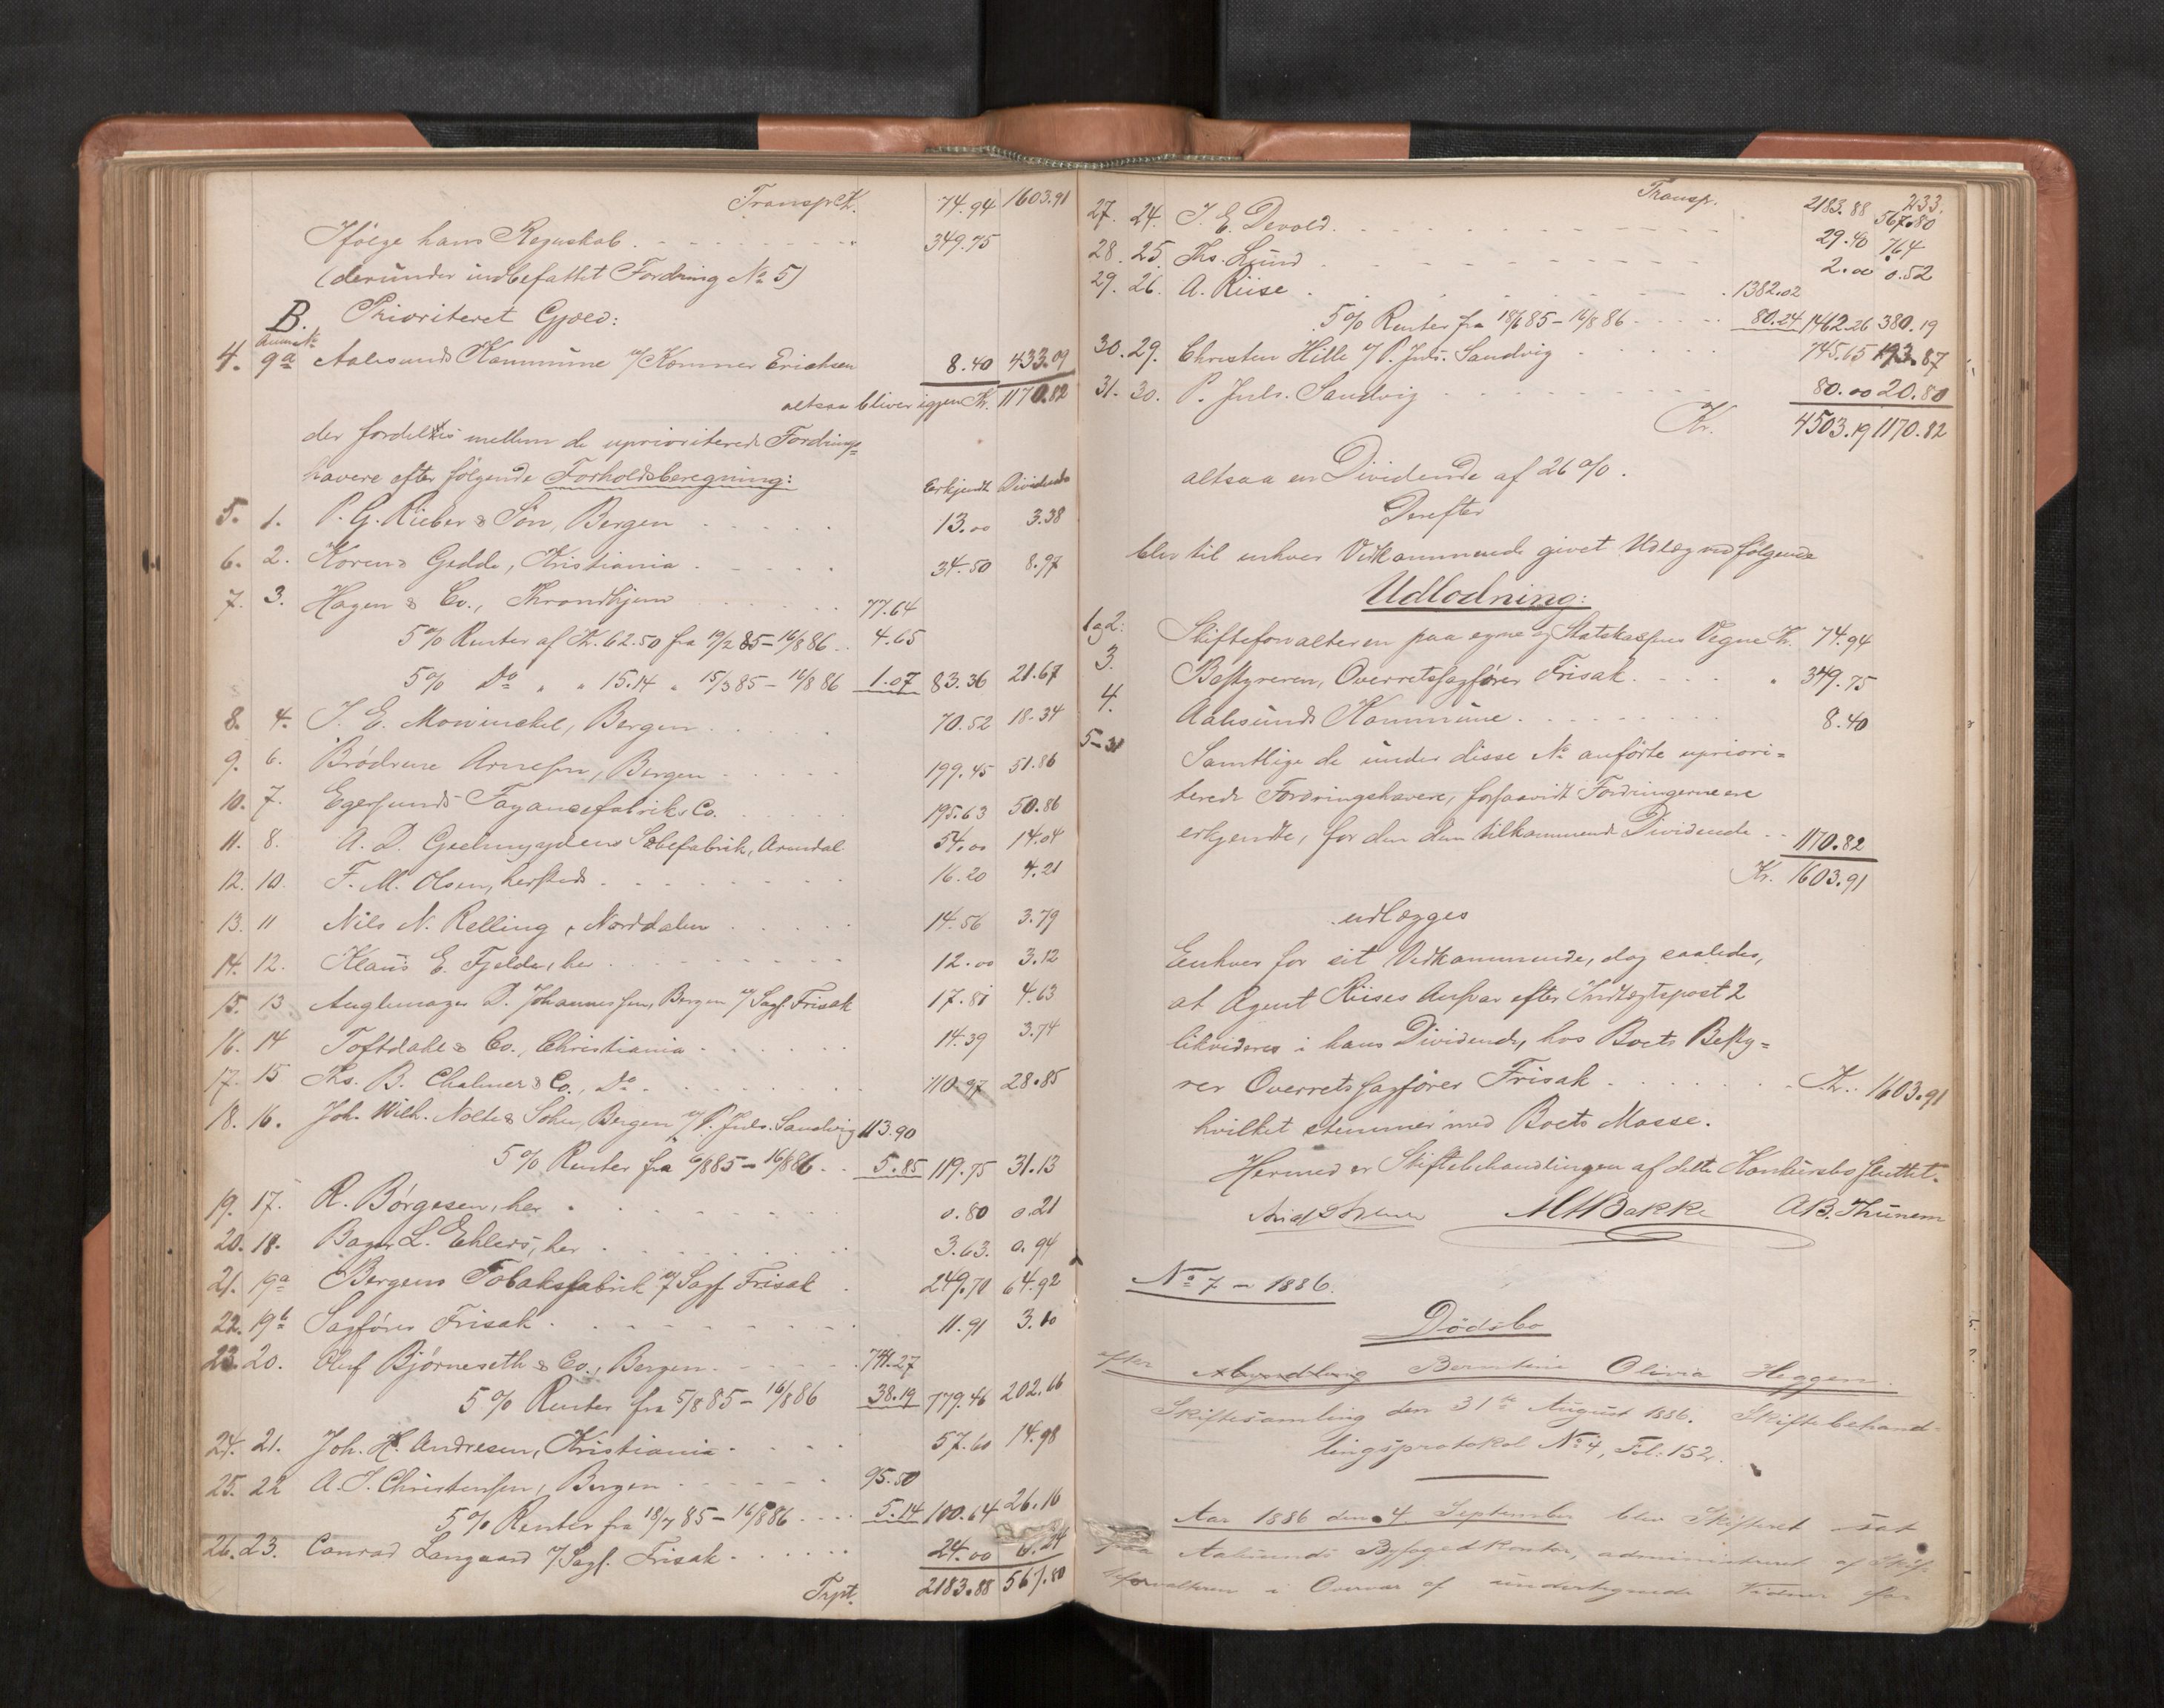 Transp. Kr. 74.94 1603.91
Ifølge hans Regnskab 349.75
(derunder indbefattet Fordring No 5)
B. Prioriteret Gjæld:
Anm. No
4. 9a Aalesunds Kommune v/ Kæmner Erichsen 8.40 433.09
altsaa bliver igjen Kr. 1170.82
der fordeles mellem de uprioriterede Fordrings-
havere efter følgende Forholdsberegning: Erkjendt Dividende
5. 1. P. G. Rieber & Søn, Bergen 13.00 3.38
6. 2. Gedde, Kristiania 34.50 8.97
7. 3. Hagen & Co., Throndhjem 77.64
5% Renter af Kr. 62.50 fra 19/2 85 – 16/8 86 4.65
5% Do " " 15.14 " 15/3 85 – 16/8 86 1.07 83.36 21.67
8. 4. J. E. Mowinckel, Bergen 70.52 18.34
9. 6. Brødrene Arnesen, Bergen 199.45 51.86
10. 7. Egersunds Fayancefabriks Co. 195.63 50.86
11. 8. A. D. Geelmuydens Sæbefabrik, Arendal 54.00 14.04
12. 10. F. M. Olsen, hersteds 16.20 4.21
13. 11 Nils N. Relling, Norddalen 14.56 3.79
14. 12. Klaus E. Fjelde, her 12.00 3.12
15. 13 D. Johannessen, Bergen v/ Sagf. Frisak 17.81 4.63
16. 14 Toftdahl & Co., Christiania 14.39 3.74
17. 15 Ths. B. Chalmer & Co., Do 110.97 28.85
18. 16. Joh. Wilh. Nolte & Sohn, Bergen v/ P. Juls. Sandvig 113.90
5% Renter fra 6/8 85 – 16/8 86 5.85 119.75 31.13
19. 17. R. Børgesen, her 0.80 0.21
20. 18. Bager L. Ehlers, her 3.63 0.94
21. 19a Bergens Tobaksfabrik v/ Sagf. Frisak 249.70 64.92
22. 19b Sagfører Frisak 11.91 3.10
23. 20. Oluf Bjørneseth & Co., Bergen 741.27
5% Renter fra 5/8 85 – 16/8 86 38.19 779.46 202.66
24. 21. Joh. H. Andresen, Kristiania 57.60 14.98
25. 22 A. J. Christensen, Bergen 95.50
5% Renter fra 18/7 85 – 16/8 86 5.14 100.64 26.16
26. 23. Conrad Langaard v/ Sagf. Frisak 24.00 6.24
Trpt. 2183.88 567.80
233.
Transp. 2183.88 567.80
27. 24. J. E. Devold 29.40 7.64
28. 25. Ths. Lund 2.00 0.52
29. 26. A. Riise 1382.02
5% Renter fra 18/6 85 – 16/8 86 80.24 1462.26 380.19
30. 29. Christen Hille v/ P. Juls. Sandvig 745.65 193.87
31. 30. P. Juls. Sandvig 80.00 20.80
Kr. 4503.19 1170.82
altsaa en Dividende af 26%.
Derefter
blev til enhver Vedkommende givet Udlæg ved følgende
Udlodning:
1 og 2: Skifteforvalteren paa egne og Statskassens Vegne Kr. 74.94
3. Bestyreren, Overretssagfører Frisak " 349.75
4. Aalesunds Kommune 8.40
5–31 Samtlige de under disse No anførte upriori-
terede Fordringshavere, forsaavidt Fordringerne ere
erkjendte, for den dem tilkommende Dividende 1170.82
Kr. 1603.91
udlægges
Enhver for sit Vedkommende, dog saaledes,
at Agent Riises Ansvar efter Indtægtspost 2
likvideres i hans Dividende, hos Boets Besty-
rer Overretssagfører Frisak Kr. 1603.91
hvilket stemmer med Boets Masse.
Hermed er Skiftebehandlingen af dette Konkursbo sluttet.
M Bakke A. B. Thunem
No 7 – 1886.
Dødsbo
efter Berntine Olivia Heggen.
Skiftesamling den 31te August 1886. Skiftebehand-
lingsprotokol No 4, Fol: 152.
Aar 1886 den 4. September blev Skifteret sat
paa Aalesunds Byfogedkontor, administreret af Skif-
teforvalteren i Overvær af undertegnede Vidner for